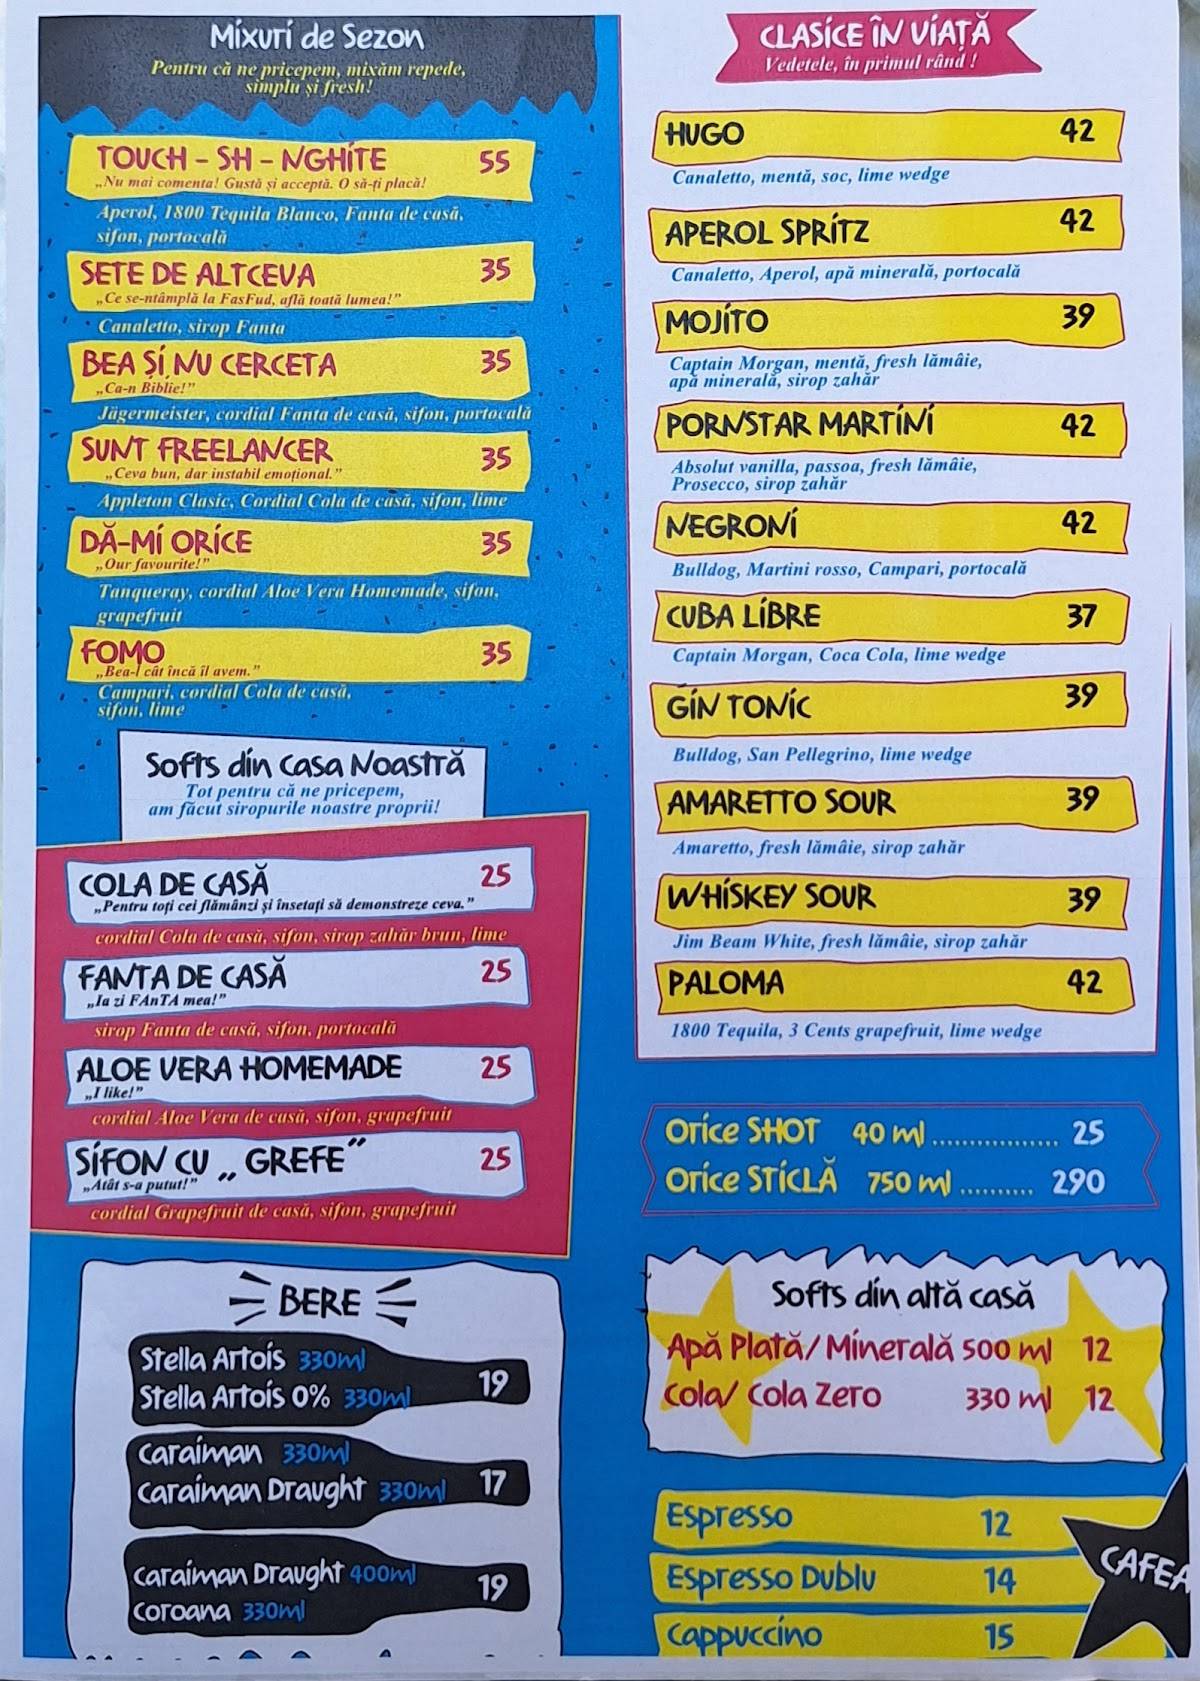 Mixuri de Sezon
Pentru că ne pricepem, mixăm repede,
simplu și fresh!
TOUCH - SH - NGHITE 55
„Nu mai comenta! Gustă și acceptă. O să-ți placă!
Aperol, 1800 Tequila Blanco, Fanta de casă,
sifon, portocală
SETE DE ALTCEVA 35
„Ce se-ntâmplă la FasFud, află toată lumea!”
Canaletto, sirop Fanta
BEA ȘI NU CERCETA 35
„Ca-n Biblie!”
Jägermeister, cordial Fanta de casă, sifon, portocală
SUNT FREELANCER 35
„Ceva bun, dar instabil emoțional.”
Appleton Clasic, Cordial Cola de casă, sifon, lime
DĂ-MI ORICE 35
„Our favourite!”
Tanqueray, cordial Aloe Vera Homemade, sifon,
grapefruit
FOMO 35
„Bea-l cât încă îl avem.”
Campari, cordial Cola de casă,
sifon, lime
Softs din casa Noastră
Tot pentru că ne pricepem,
am făcut siropurile noastre proprii!
COLA DE CASĂ 25
„Pentru toți cei flămânzi și însetați să demonstreze ceva.”
cordial Cola de casă, sifon, sirop zahăr brun, lime
FANTA DE CASĂ 25
„Ia zi FAnTA mea!”
sirop Fanta de casă, sifon, portocală
ALOE VERA HOMEMADE 25
„I like!”
cordial Aloe Vera de casă, sifon, grapefruit
SIFON CU „GREFE” 25
„Atât s-a putut!”
cordial Grapefruit de casă, sifon, grapefruit
BERE
Stella Artois 330ml
Stella Artois 0% 330ml 19
Caraiman 330ml
Caraiman Draught 330ml 17
Caraiman Draught 400ml
Coroana 330ml 19
CLASICE ÎN VIAȚĂ
Vedetele, în primul rând !
HUGO 42
Canaletto, mentă, soc, lime wedge
APEROL SPRITZ 42
Canaletto, Aperol, apă minerală, portocală
MOJITO 39
Captain Morgan, mentă, fresh lămâie,
apă minerală, sirop zahăr
PORNSTAR MARTINI 42
Absolut vanilla, passoa, fresh lămâie,
Prosecco, sirop zahăr
NEGRONI 42
Bulldog, Martini rosso, Campari, portocală
CUBA LIBRE 37
Captain Morgan, Coca Cola, lime wedge
GIN TONIC 39
Bulldog, San Pellegrino, lime wedge
AMARETTO SOUR 39
Amaretto, fresh lămâie, sirop zahăr
WHISKEY SOUR 39
Jim Beam White, fresh lămâie, sirop zahăr
PALOMA 42
1800 Tequila, 3 Cents grapefruit, lime wedge
Orice SHOT 40 ml ................. 25
Orice STICLĂ 750 ml .......... 290
Softs din altă casă
Apă Plată/ Minerală 500 ml 12
Cola/ Cola Zero 330 ml 12
Espresso 12
Espresso Dublu 14
Cappuccino 15
CAFEA